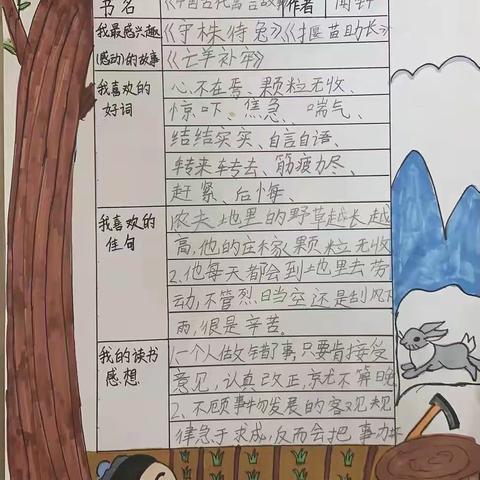 书名 《中国古代寓言故事》 作者
我最感兴趣 《守株待兔》《揠苗助长》
(感动)的故事 《亡羊补牢》
我喜欢的 心不在焉、颗粒无收、
好词 惊吓、焦急、喘气、
结结实实、自言自语、
转来转去、筋疲力尽、
赶紧、后悔、
我喜欢的 农夫地里的野草越长越
佳句 高,他的庄稼颗粒无收
2.他每天都会到地里去劳
动,不管烈日当空还是刮风下
雨,很是辛苦。
我的读书 1.一个人做错了事,只要肯接受
感想 意见,认真改正,就不算晚
2、不顾事物发展的客观规
律急于求成,反而会把事办坏